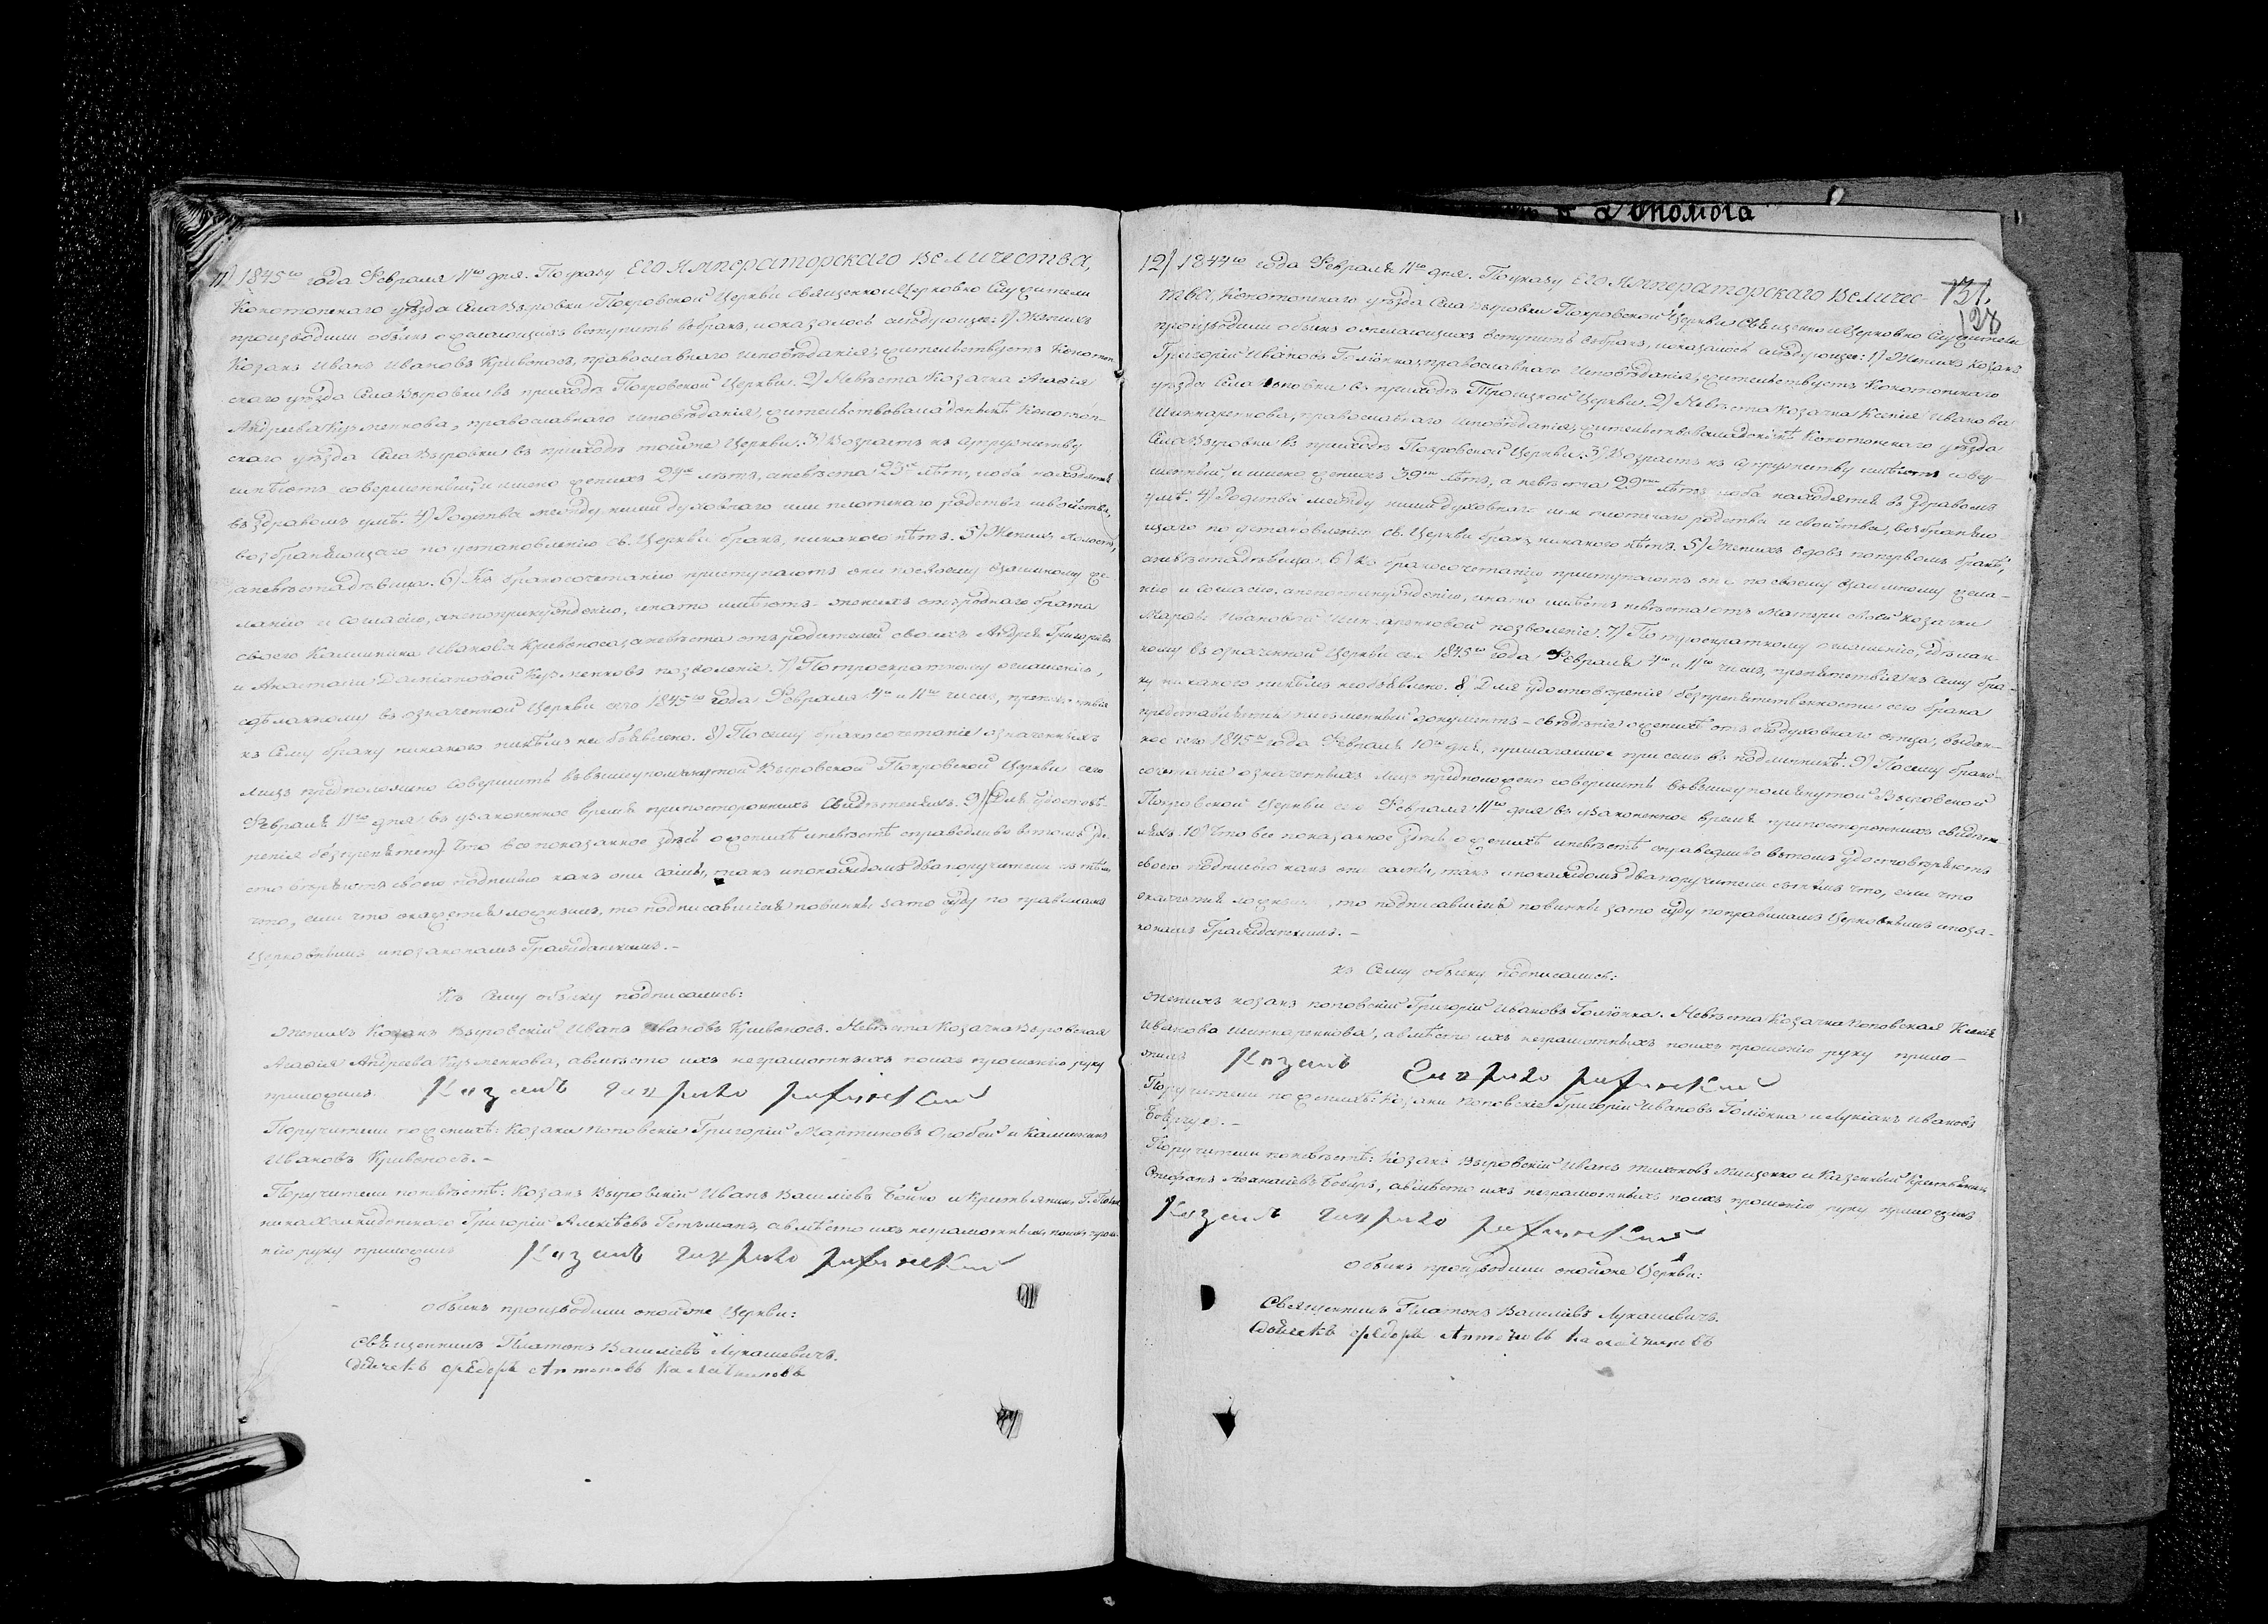 опомога
11) 1845го года Февраля 11го дня. По указу Его Императорскаго Величества,
Конотопскаго уѣзда села Выровки Покровской Церкви священно и Церковно Служители
производили обыскъ о желающихъ вступить въ бракъ, и оказалось слѣдующее: 1) Женихъ
Козакъ Иванъ Ивановъ Кривоносъ, православнаго исповѣданія, жительствуетъ Конотоп-
скаго уѣзда Села Выровки въ приходѣ Покровской Церкви. 2) Невѣста Козачка Агафія
Андреева Кузменкова, православнаго исповѣданія, жительствовала донынѣ Конотоп-
скаго уѣзда Села Выровки въ приходѣ тойже Церкви. 3) Возрастъ къ супружеству
имѣютъ совершенный, и именно женихъ лѣтъ, а невѣста 23 лѣтъ, и оба находятся
въ здравомъ умѣ. 4) Родства между ними духовнаго или плотскаго родства и свойства,
возбраняющаго по установленію св. Церкви бракъ, никакого нѣтъ. 5) Женихъ холостъ,
а невѣста дѣвица. 6) Къ бракосочетанію приступаютъ они по своему взаимному же-
ланію и согласію, а не по принужденію, и на то имѣютъ женихъ отъ роднаго брата
своего Калинника Иванова Кривоноса, а невѣста отъ родителей своихъ Андрея Григорьева
и Анастасіи Даміановой Кузменковъ позволеніе. 7) По троекратному оглашенію,
сдѣланному въ означенной Церкви сего 1845го года Февраля 4го и 11го чиселъ, препятствія
къ сему браку никакого никѣмъ не объявлено. 8) По сему бракосочетаніе означенныхъ
лицъ предположено совершить въ вышеупомянутой Выровской Покровской Церкви сего
Февраля 11го дня въ узаконенное время при постороннихъ свидѣтеляхъ. 9)
Что все показанное здѣсь о женихѣ и невѣстѣ справедливо въ томъ удо-
стовѣряютъ своею подписью какъ они сами, такъ и по каждомъ два поручителя съ тѣмъ
что, если что окажется ложнымъ, то подписавшіеся повинны за то суду по правиламъ
Церковнымъ и по законамъ Гражданскимъ.-
Къ сему обыску подписались:
Женихъ Козакъ Выровскій Иванъ Ивановъ Кривоносъ. Невѣста Козачка Выровская
Агафія Андреева Кузменкова, а вмѣсто ихъ неграмотныхъ по ихъ прошенію руку
приложилъ Козакъ
Поручители по женихѣ: Козаки Поповскіе Григорій и Калинникъ
Ивановъ Кривоносъ.-
Поручители по невѣстѣ: Козакъ Выровскій Иванъ Василіевъ Бойко и
Григорій Алексѣевъ Гетьманъ, а вмѣсто ихъ неграмотныхъ по ихъ проше-
нію руку приложилъ Козакъ
Обыскъ производили онойже Церкви:
Священникъ Платонъ Василіевъ Лукашевичъ.
Дьячекъ Федоръ Антоновъ
131.
128
12) 1844го года Февраля 11го дня. По указу Его Императорскаго Величес-
тва, Конотопскаго уѣзда Села Выровки Покровской Церкви Священно и Церковно Служители
производили обыскъ о желающихъ вступить въ бракъ, и оказалось слѣдующее: 1) Женихъ Козакъ
Григорій Ивановъ православнаго исповѣданія, жительствуетъ Конотопскаго
уѣзда Села Поповки въ приходѣ Троицкой Церкви. 2) Невѣста Козачка Ксенія Иванова
Шинкаренкова, православнаго исповѣданія, жительствовала донынѣ Конотопскаго уѣзда
Села Выровки въ приходѣ Покровской Церкви. 3) Возрастъ къ супружеству имѣютъ совер-
шенный, и именно женихъ 39 лѣтъ, а невѣста 29 лѣтъ и оба находятся въ здравомъ
умѣ. 4) Родства между ними духовнаго или плотскаго родства и свойства, возбраняю-
щаго по установленію св. Церкви бракъ, никакого нѣтъ. 5) Женихъ вдовъ по первомъ бракѣ,
а невѣста дѣвица. 6) Къ бракосочетанію приступаютъ они по своему взаимному жела-
нію и согласію, а не по принужденію, и на то имѣетъ невѣста отъ матери своей козачки
Ивановой Шинкаренковой позволеніе. 7) По троекратному оглашенію, сдѣлан-
ному въ означенной Церкви сего 1845го года Февраля 4го и 11го чиселъ, препятствія къ сему бра-
ку никакого никѣмъ не объявлено. 8) Для удостовѣренія безпрепятственности сего брака
представляется письменный документъ - свѣдѣніе о женихѣ отъ его духовнаго отца, выдан-
ное сего 1845го года Февраля 10го дня, прилагаемое при семъ въ подлинникѣ. 9) По сему брако-
сочетаніе означенныхъ лицъ предположено совершить въ вышеупомянутой Выровской
Покровской Церкви сего Февраля 11го дня въ узаконенное время при постороннихъ свидѣте-
ляхъ. 10) Что все показанное здѣсь о женихѣ и невѣстѣ справедливо въ томъ удостовѣряютъ
своею подписью какъ они сами, такъ и по каждомъ два поручителя съ тѣмъ что, если что
окажется ложнымъ, то подписавшіеся повинны за то суду по правиламъ Церковнымъ и по за-
конамъ Гражданскимъ.-
Къ сему обыску подписались:
Женихъ козакъ поповскій Григорій Ивановъ Невѣста Козачка поповская Ксенія
Иванова Шинкаренкова, а вмѣсто ихъ неграмотныхъ по ихъ прошенію руку прило-
жилъ Козакъ
Поручители по женихѣ: Козаки поповскіе Григорій Ивановъ и Лукіанъ Ивановъ
Поручители по невѣстѣ: Козакъ Выровскій Иванъ Тихоновъ Мищенко и Казенный Крестьянинъ
Стефанъ Аѳанасіевъ а вмѣсто ихъ неграмотныхъ по ихъ прошенію руку приложилъ
Козакъ
Обыскъ производили онойже Церкви:
Священникъ Платонъ Василіевъ Лукашевичъ.
Дьячекъ Федоръ Антоновъ